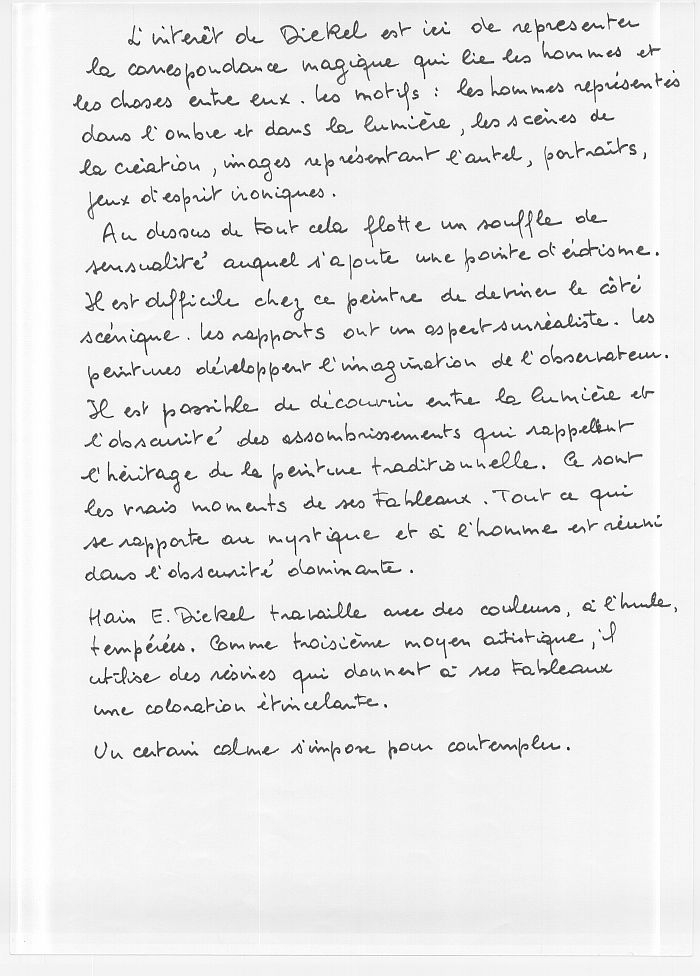 L'interêt de Dickel est ici de representer
la correspondance magique qui lie les hommes et
les choses entre eux. Les motifs : les hommes représentés
dans l'ombre et dans la lumière, les scènes de
la création, images représentant l'autel, portraits,
jeux d'esprit ironiques.
Au dessus de tout cela flotte un souffle de
sensualité auquel s'ajoute une pointe d'érotisme.
Il est difficile chez ce peintre de deviner le côté
scénique. Les rapports ont un aspect surréaliste. Les
peintures développent l'imagination de l'observateur.
Il est possible de découvrir entre la lumière et
l'obscurité des assombrissements qui rappellent
l'héritage de la peinture traditionnelle. Ce sont
les vrais moments de ses tableaux. Tout ce qui
se rapporte au mystique et à l'homme est réuni
dans l'obscurité dominante.
Hain E. Dickel travaille avec des couleurs, à l'huile,
tempérées. Comme troisième moyen artistique, il
utilise des résines qui donnent à ses tableaux
une coloration étincelante.
Un certain calme s'impose pour contempler.